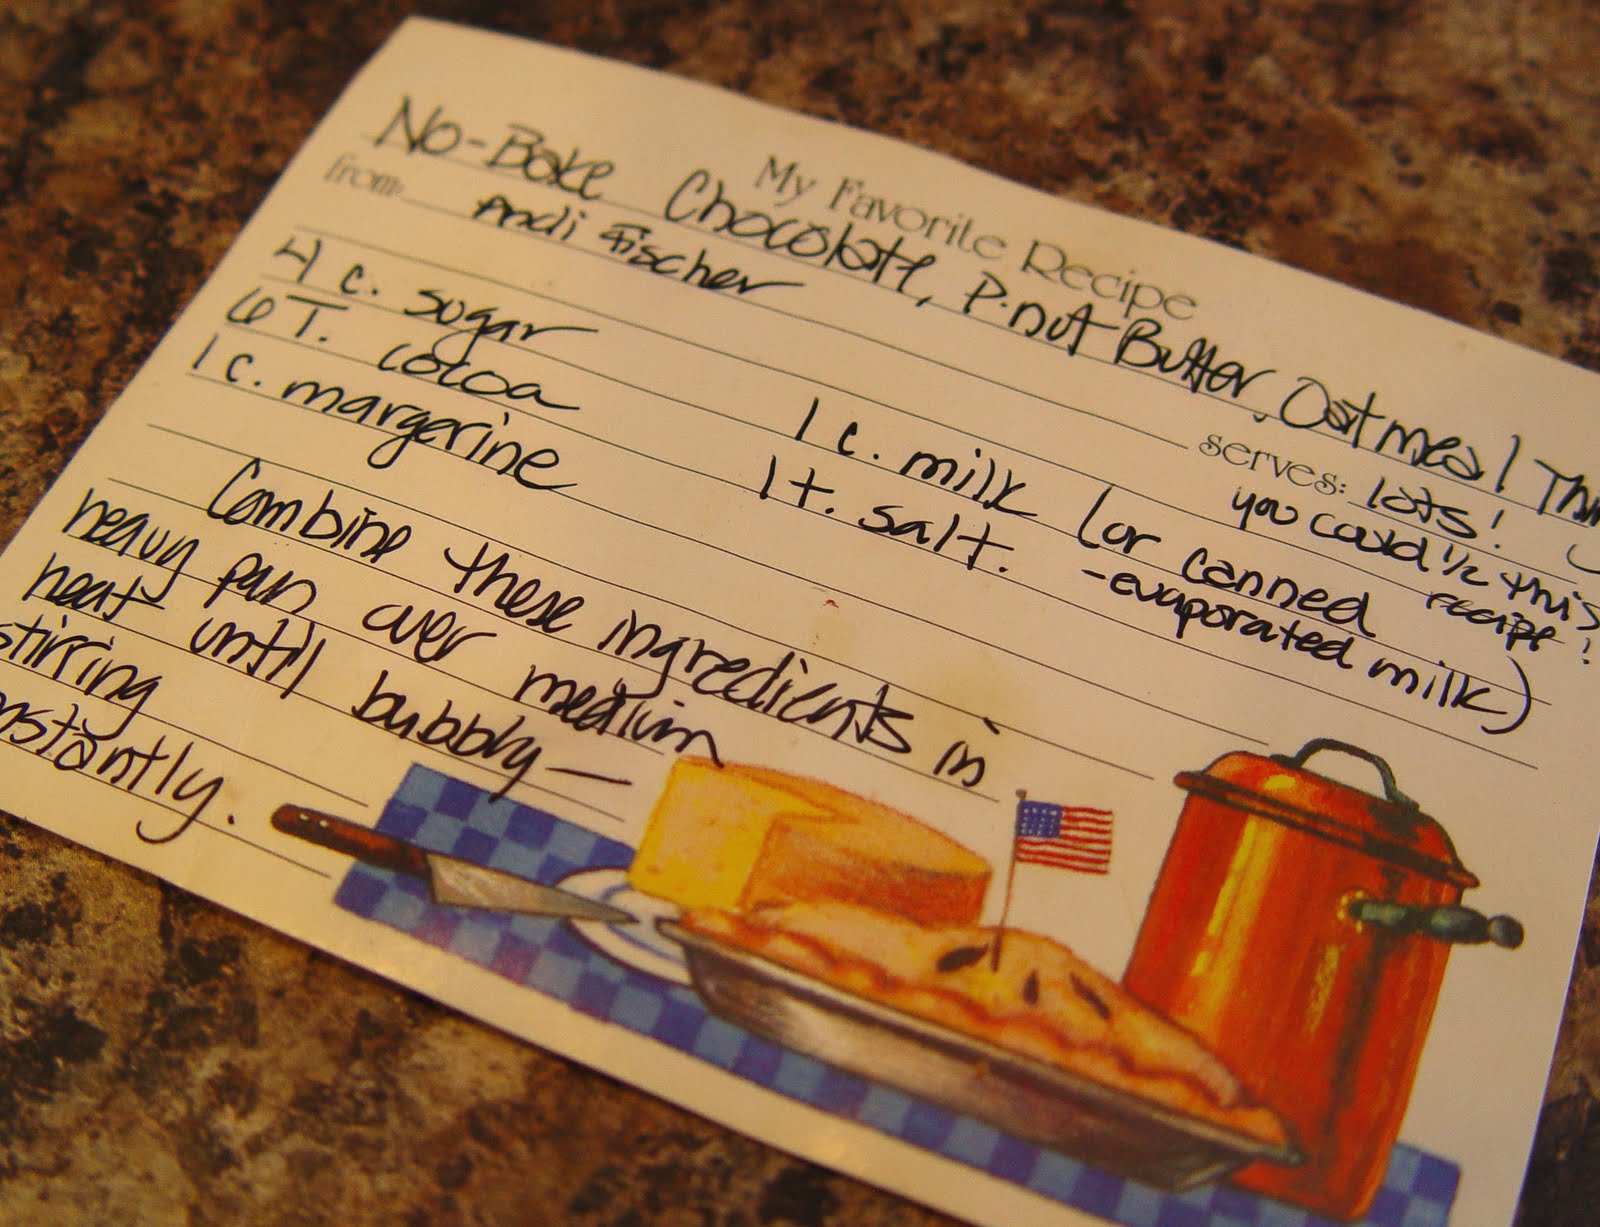 My Favorite Recipe
No-Bake Chocolate, P.nut Butter, Oatmeal
from: Andi Fischer
serves: lots!
you could 1/2 this
recipe!
4 c. sugar
1 c. milk (or canned
-evaporated milk)
6 T. cocoa
1 t. salt.
1 c. margerine
Combine these ingredients in
heavy pan over medium
heat until bubbly—
stirring